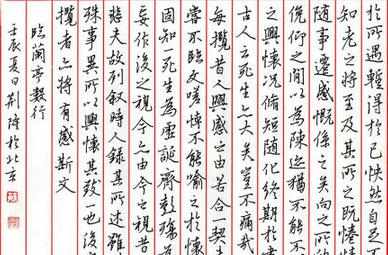 於所遇輕得於己怏然自足不
知老之將至及其所之既惓情
隨事遷感慨係之矣向之所欣
俛仰之間以為陳迹猶不能不
之興懷況脩短隨化終期於盡
古人云死生亦大矣豈不痛哉
每攬昔人興感之由若合一契
嘗不臨文嗟悼不能喻之於懷
固知一死生為虛誕齊彭殤為
妄作後之視今亦由今之視昔
悲夫故列敘時人錄其所述雖
殊事異所以興懷其致一也後
攬者亦將有感斯文
臨蘭亭數行
壬辰夏日荊於北京